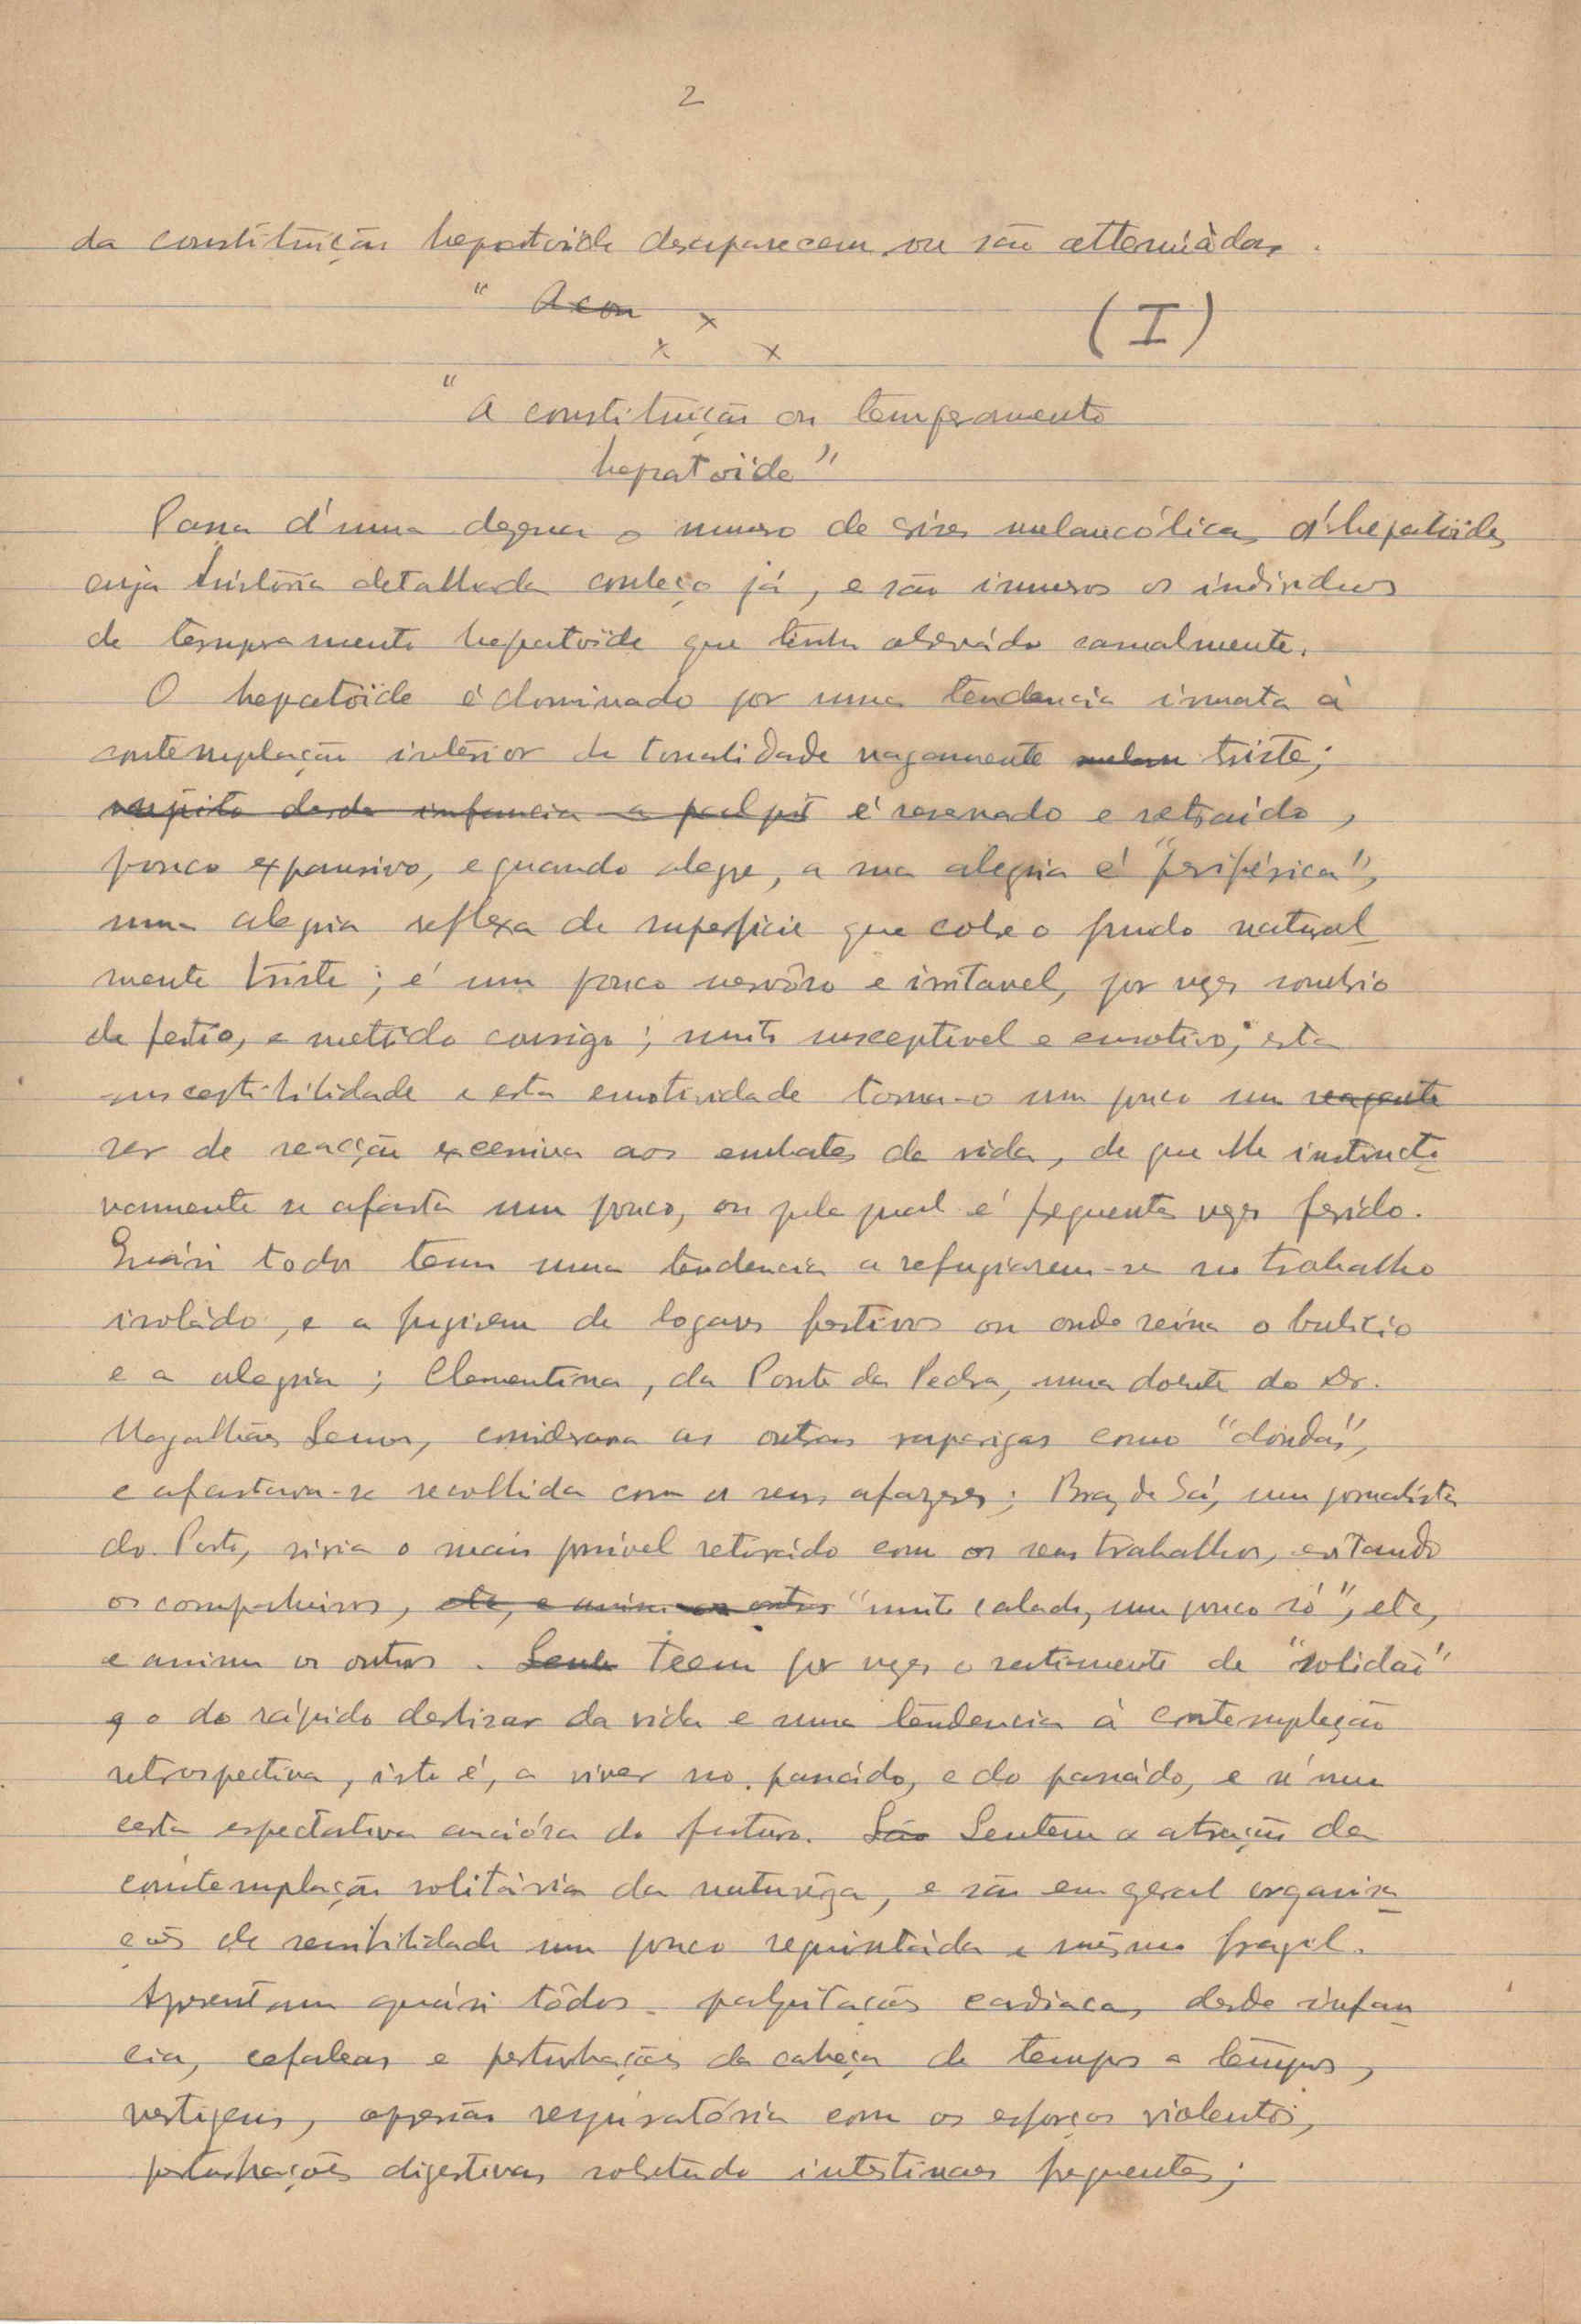 2
da constituição hepatoide desaparecem, ou são attenuàdas.
" A con
x
x x
(I)
"A constituição ou temperamento
hepatoide"
Passa d'uma dezena o numero de crises melancólicas d'hepatoides
cuja história detalhada conheço já, e são inumeros os individuos
de temperamento hepatoide que tenho observádo casualmente.
O hepatoide é dominado por uma tendencia innata à
contemplação interior de tonalidade vagamente melan triste;
desde infancia a é reservado e retraido,
pouco expansivo, e quando alegre, a sua alegria é "periférica",
uma alegria reflexa de superficie que cobre o fundo natural
mente triste; é um pouco nervôso e irritavel, por vezes sombrio
de feitio, e metido comsigo; muito susceptivel e emotivo; esta
susceptibilidade e esta emotividade torna-o um pouco um reagente
ser de reacção excessiva aos embates da vida, de que elle instincti
vamente se afasta um pouco, ou pela qual é frequentes vezes ferido.
Quási todos teem uma tendencia a refugiarem-se no trabalho
isoládo, e a fugirem de logares festivos ou onde reina o bulicio
e a alegria; Clementina, da Ponte da Pedra, uma doente do Dr.
Magalhães Lemos, considerava as outras raparigas como "doidas",
e afastava-se recolhida com os seus afazeres; Braz de Sá, um jornalista
do Porto, vivia o mais possivel retiraido com os seus trabalhos, evitando
os companheiros, etc, e assim os outros "muito calado, um pouco só", etc,
e assim os outros. Teem por vezes o sentimento de "solidão"
e o do rápido deslisar da vida e uma tendencia à contemplação
retrospectiva, isto é, a viver no passádo, e do passádo, e n'uma
certa espectativa anciósa do futuro. São Sentem a atração da
contemplação solitária da natureza, e são em geral organisa
ções de sensibilidade um pouco requintáda e mesmo fragil.
Apresentam quási tôdos palpitações cardiacas, desde infan
cia, cefaleas e perturbações da cabeça de tempos a tempos,
vertigens, opressão respiratória com os esforços violentos,
perturbações digestivas sobretudo intestinaes frequentes;